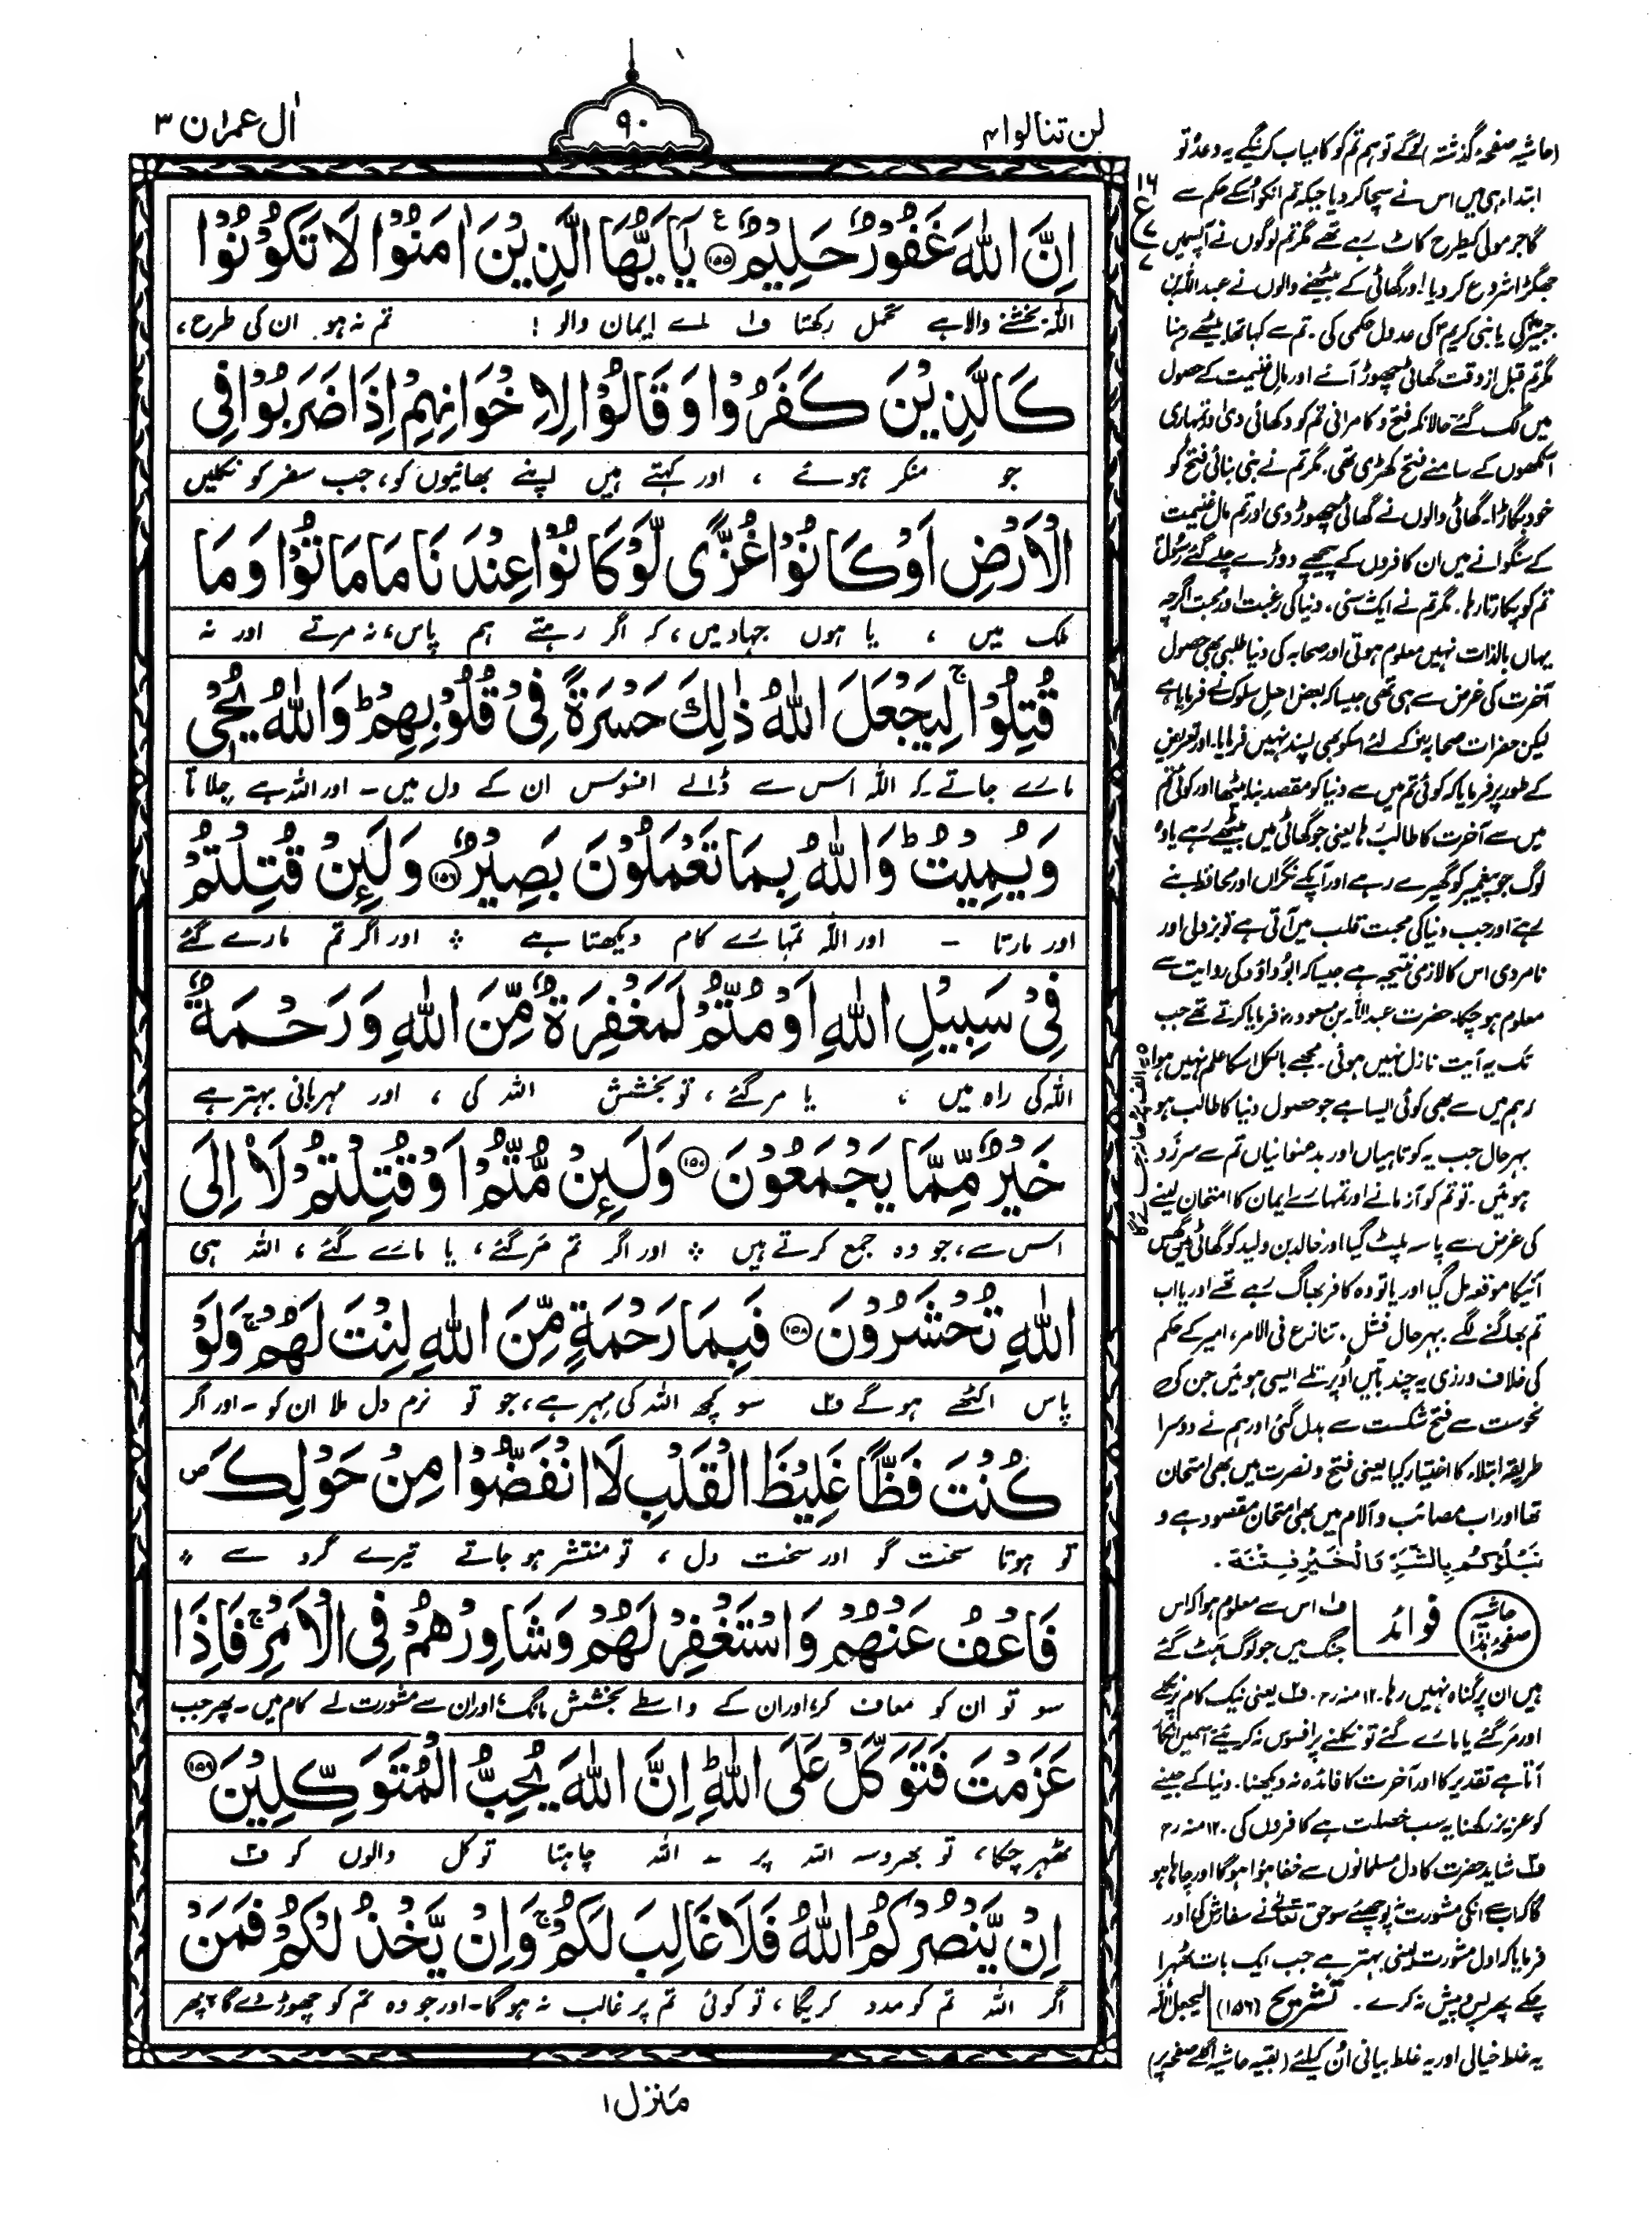 لن تنالوا ۴
۹۰
اٰل عمرٰن ۳
اِنَّ اللّٰهَ غَفُوْرٌ حَلِیْمٌ ﴿۱۵۵﴾ یٰۤاَیُّهَا الَّذِیْنَ اٰمَنُوْا لَا تَكُوْنُوْا
اللہ بخشنے والا ہے تحمل رکھتا ف۱ اے ایمان والو ! تم نہ ہو ان کی طرح،
كَالَّذِیْنَ كَفَرُوْا وَ قَالُوْا لِاِخْوَانِهِمْ اِذَا ضَرَبُوْا فِی
جو منکر ہوئے ، اور کہتے ہیں اپنے بھائیوں کو، جب سفر کو نکلیں
الْاَرْضِ اَوْ كَانُوْا غُزًّی لَّوْ كَانُوْا عِنْدَنَا مَا مَاتُوْا وَ مَا
ملک میں ، یا ہوں جہاد میں، کہ اگر رہتے ہم پاس، نہ مرتے اور نہ
قُتِلُوْا ۚ لِیَجْعَلَ اللّٰهُ ذٰلِكَ حَسْرَةً فِیْ قُلُوْبِهِمْ ؕ وَ اللّٰهُ یُحْیٖ
مارے جاتے۔ کہ اللہ اس سے ڈالے افسوس ان کے دل میں۔ اور اللہ ہے جلاتا
وَ یُمِیْتُ ؕ وَ اللّٰهُ بِمَا تَعْمَلُوْنَ بَصِیْرٌ ﴿۱۵۶﴾ وَ لَىِٕنْ قُتِلْتُمْ
اور مارتا ۔ اور اللہ تمہارے کام دیکھتا ہے ۞ اور اگر تم مارے گئے
فِیْ سَبِیْلِ اللّٰهِ اَوْ مُتُّمْ لَمَغْفِرَةٌ مِّنَ اللّٰهِ وَ رَحْمَةٌ
اللہ کی راہ میں ، یا مر گئے ، تو بخشش اللہ کی ، اور مہربانی بہتر ہے
خَیْرٌ مِّمَّا یَجْمَعُوْنَ ﴿۱۵۷﴾ وَ لَىِٕنْ مُّتُّمْ اَوْ قُتِلْتُمْ لَاۡاِلَی
اس سے، جو وہ جمع کرتے ہیں ۞ اور اگر تم مر گئے ، یا مارے گئے ، اللہ ہی
اللّٰهِ تُحْشَرُوْنَ ﴿۱۵۸﴾ فَبِمَا رَحْمَةٍ مِّنَ اللّٰهِ لِنْتَ لَهُمْ ۚ وَ لَوْ
پاس اکٹھے ہوگے ف۲ سو کچھ اللہ کی مہر ہے، جو تو نرم دل ملا ان کو ۔ اور اگر
كُنْتَ فَظًّا غَلِیْظَ الْقَلْبِ لَا انْفَضُّوْا مِنْ حَوْلِكَ ۪
تو ہوتا سخت گو اور سخت دل ، تو منتشر ہو جاتے تیرے گرد سے ۞
فَاعْفُ عَنْهُمْ وَ اسْتَغْفِرْ لَهُمْ وَ شَاوِرْهُمْ فِی الْاَمْرِ ۚ فَاِذَا
سو تو ان کو معاف کر، اور ان کے واسطے بخشش مانگ، اور ان سے مشورت لے کام میں۔ پھر جب
عَزَمْتَ فَتَوَكَّلْ عَلَی اللّٰهِ ؕ اِنَّ اللّٰهَ یُحِبُّ الْمُتَوَكِّلِیْنَ ﴿۱۵۹﴾
ٹھہر چکا، تو بھروسہ اللہ پر ۔ اللہ چاہتا توکل والوں کو ف۳
اِنْ یَّنْصُرْكُمُ اللّٰهُ فَلَا غَالِبَ لَكُمْ ۚ وَ اِنْ یَّخْذُلْكُمْ فَمَنْ
اگر اللہ تم کو مدد کریگا ، تو کوئی تم پر غالب نہ ہوگا۔ اور جو وہ تم کو چھوڑ دے گا، پھر
منزل ۱
(حاشیہ صفحہ گذشتہ) لوگے تو ہم تم کو کامیاب کرینگے یہ وعدہ تو
ابتداء ہی میں اس نے سچا کر دیا جبکہ تم انکو اُسکے حکم سے
گاجر مولی کیطرح کاٹ رہے تھے مگر تم لوگوں نے آپسمیں
جھگڑا شروع کر دیا اور گھاٹی کے بیٹھنے والوں نے عبداللہ بن
جبیرؓ کی یا نبی کریمؐ کی عدول حکمی کی۔ تم سے کہا تھا بیٹھے رہنا
مگر تم قبل از وقت گھاٹی چھوڑ آئے اور مالِ غنیمت کے حصول
میں لگ گئے حالانکہ فتح و کامرانی تم کو دکھائی دی اور تمہاری
آنکھوں کے سامنے فتح کھڑی تھی۔ مگر تم نے بنی بنائی فتح کو
خود بگاڑا۔ گھاٹی والوں نے گھاٹی چھوڑ دی اور تم مال غنیمت
کے سنگوانے میں ان کافروں کے پیچھے دوڑے چلے گئے رسولؐ
تم کو پکارتا رہا۔ مگر تم نے ایک نہ سنی، دنیا کی رغبت اور محبت اگرچہ
یہاں بالذات نہیں معلوم ہوتی اور صحابہ کی دنیا طلبی بھی حصول
آخرت کی غرض سے ہی تھی جیسا کہ بعض اہل سلوک نے فرمایا ہے
لیکن حضرات صحابہؓ کے لئے اسکو بھی پسند نہیں فرمایا۔ اور تعریض
کے طور پر فرمایا کہ کوئی تم میں سے دنیا کو مقصد بنا بیٹھا اور کوئی تم
میں سے آخرت کا طالب رہا یعنی جو گھاٹی میں بیٹھے رہے یا وہ
لوگ جو پیغمبر کو گھیرے رہے اور آپکے نگراں اور محافظ بنے
رہے اور جب دنیا کی محبت قلب میں آتی ہے تو بزدلی اور
نامردی اس کا لازمی نتیجہ ہے جیسا کہ ابوداؤد کی روایت سے
معلوم ہو چکا۔ حضرت عبداللہ بن مسعودؓ فرمایا کرتے تھے جب
تک یہ آیت نازل نہیں ہوئی۔ مجھے بالکل اسکا علم نہیں ہوا
کہ ہم میں سے بھی کوئی ایسا ہے جو حصول دنیا کا طالب ہو
بہرحال جب یہ کوتاہیاں اور بدعنوانیاں تم سے سرزد
ہوئیں۔ تو تم کو آزمانے اور تمہارے ایمان کا امتحان لینے
کی غرض سے پاسہ پلٹ گیا اور خالد بن ولید کو گھاٹی میں گھس
آنیکا موقعہ مل گیا اور یا تو وہ کافر بھاگ رہے تھے اور یا اب
تم بھاگنے لگے۔ بہرحال فشل۔ تنازع فی الامر، امیر کے حکم
کی خلاف ورزی یہ چند باتیں اُوپر تلے ایسی ہوئیں جن کی
نحوست سے فتح شکست سے بدل گئی اور ہم نے دوسرا
طریقہ ابتلاء کا اختیار کیا یعنی فتح و نصرت میں بھی امتحان
تھا اور اب مصائب و آلام میں بھی امتحان مقصود ہے و
نَبْلُوْكُمْ بِالشَّرِّ وَالْخَیْرِ فِتْنَة ۔
حاشیہ صفحہ ہذا
فوائد
ف۱ اس سے معلوم ہوا کہ اس
جنگ میں جو لوگ ہٹ گئے
ہیں ان پر گناہ نہیں رہا۔ ۱۲ منہ رح۔ ف۲ یعنی نیک کام پر نکلے
اور مر گئے یا مارے گئے تو نکلنے پر افسوس نہ کریئے اسمیں انکار
آتا ہے تقدیر کا اور آخرت کا فائدہ نہ دیکھنا۔ دنیا کے جینے
کو عزیز رکھنا یہ سب خصلت ہے کافروں کی۔ ۱۲ منہ رح
ف۳ شاید حضرت کا دل مسلمانوں سے خفا ہوا ہوگا اور چاہا ہو
گا کہ اب سے انکی مشورت نہ پوچھئے سو حق تعالیٰ نے سفارش کی اور
فرمایا کہ اول مشورت لینی بہتر ہے جب ایک بات ٹھہرا
چکے پھر پس و پیش نہ کرے۔ تشریح (۱۵۶) لیجعل اللہ
یہ غلط خیالی اور یہ غلط بیانی اُن کیلئے (بقیہ حاشیہ اگلے صفحہ پر)